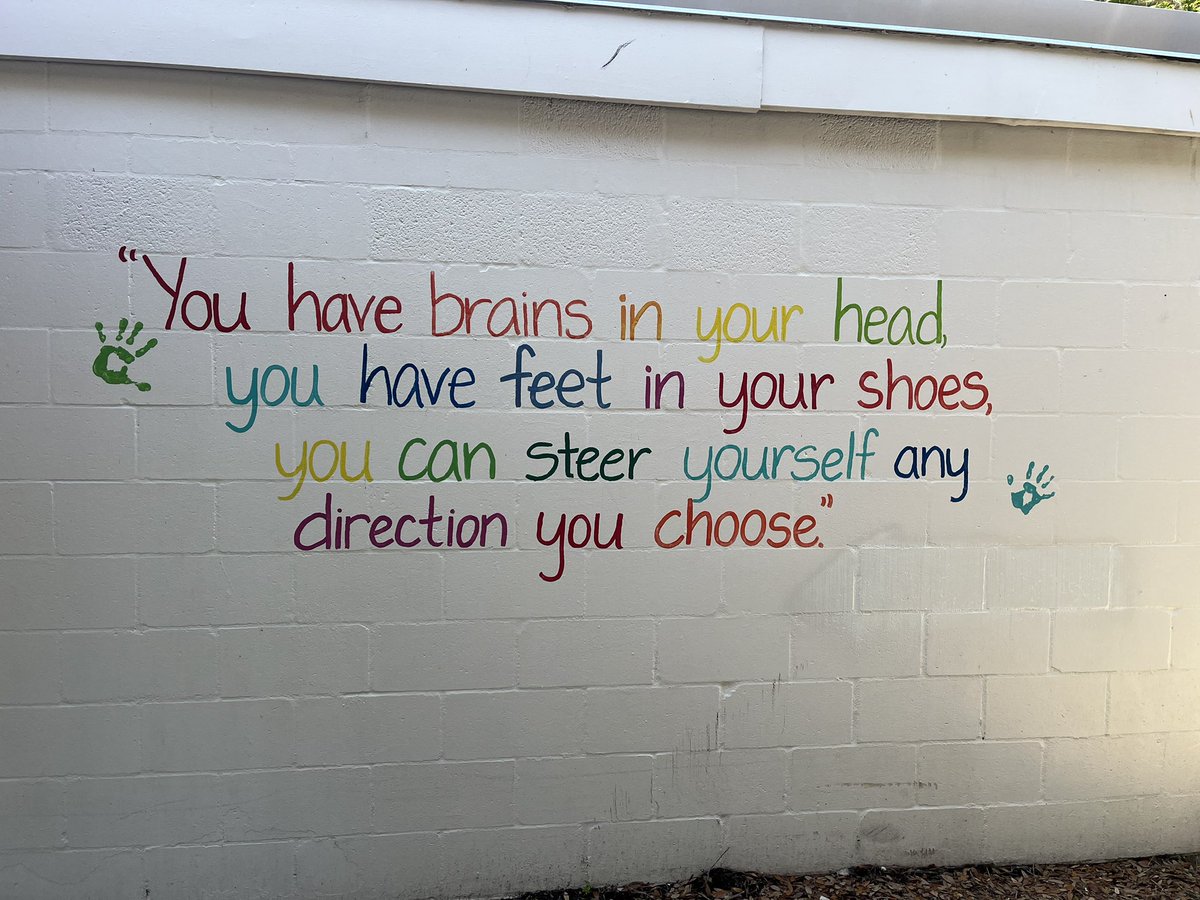 “You have brains in your head,
you have feet in your shoes,
you can steer yourself any
direction you choose.”